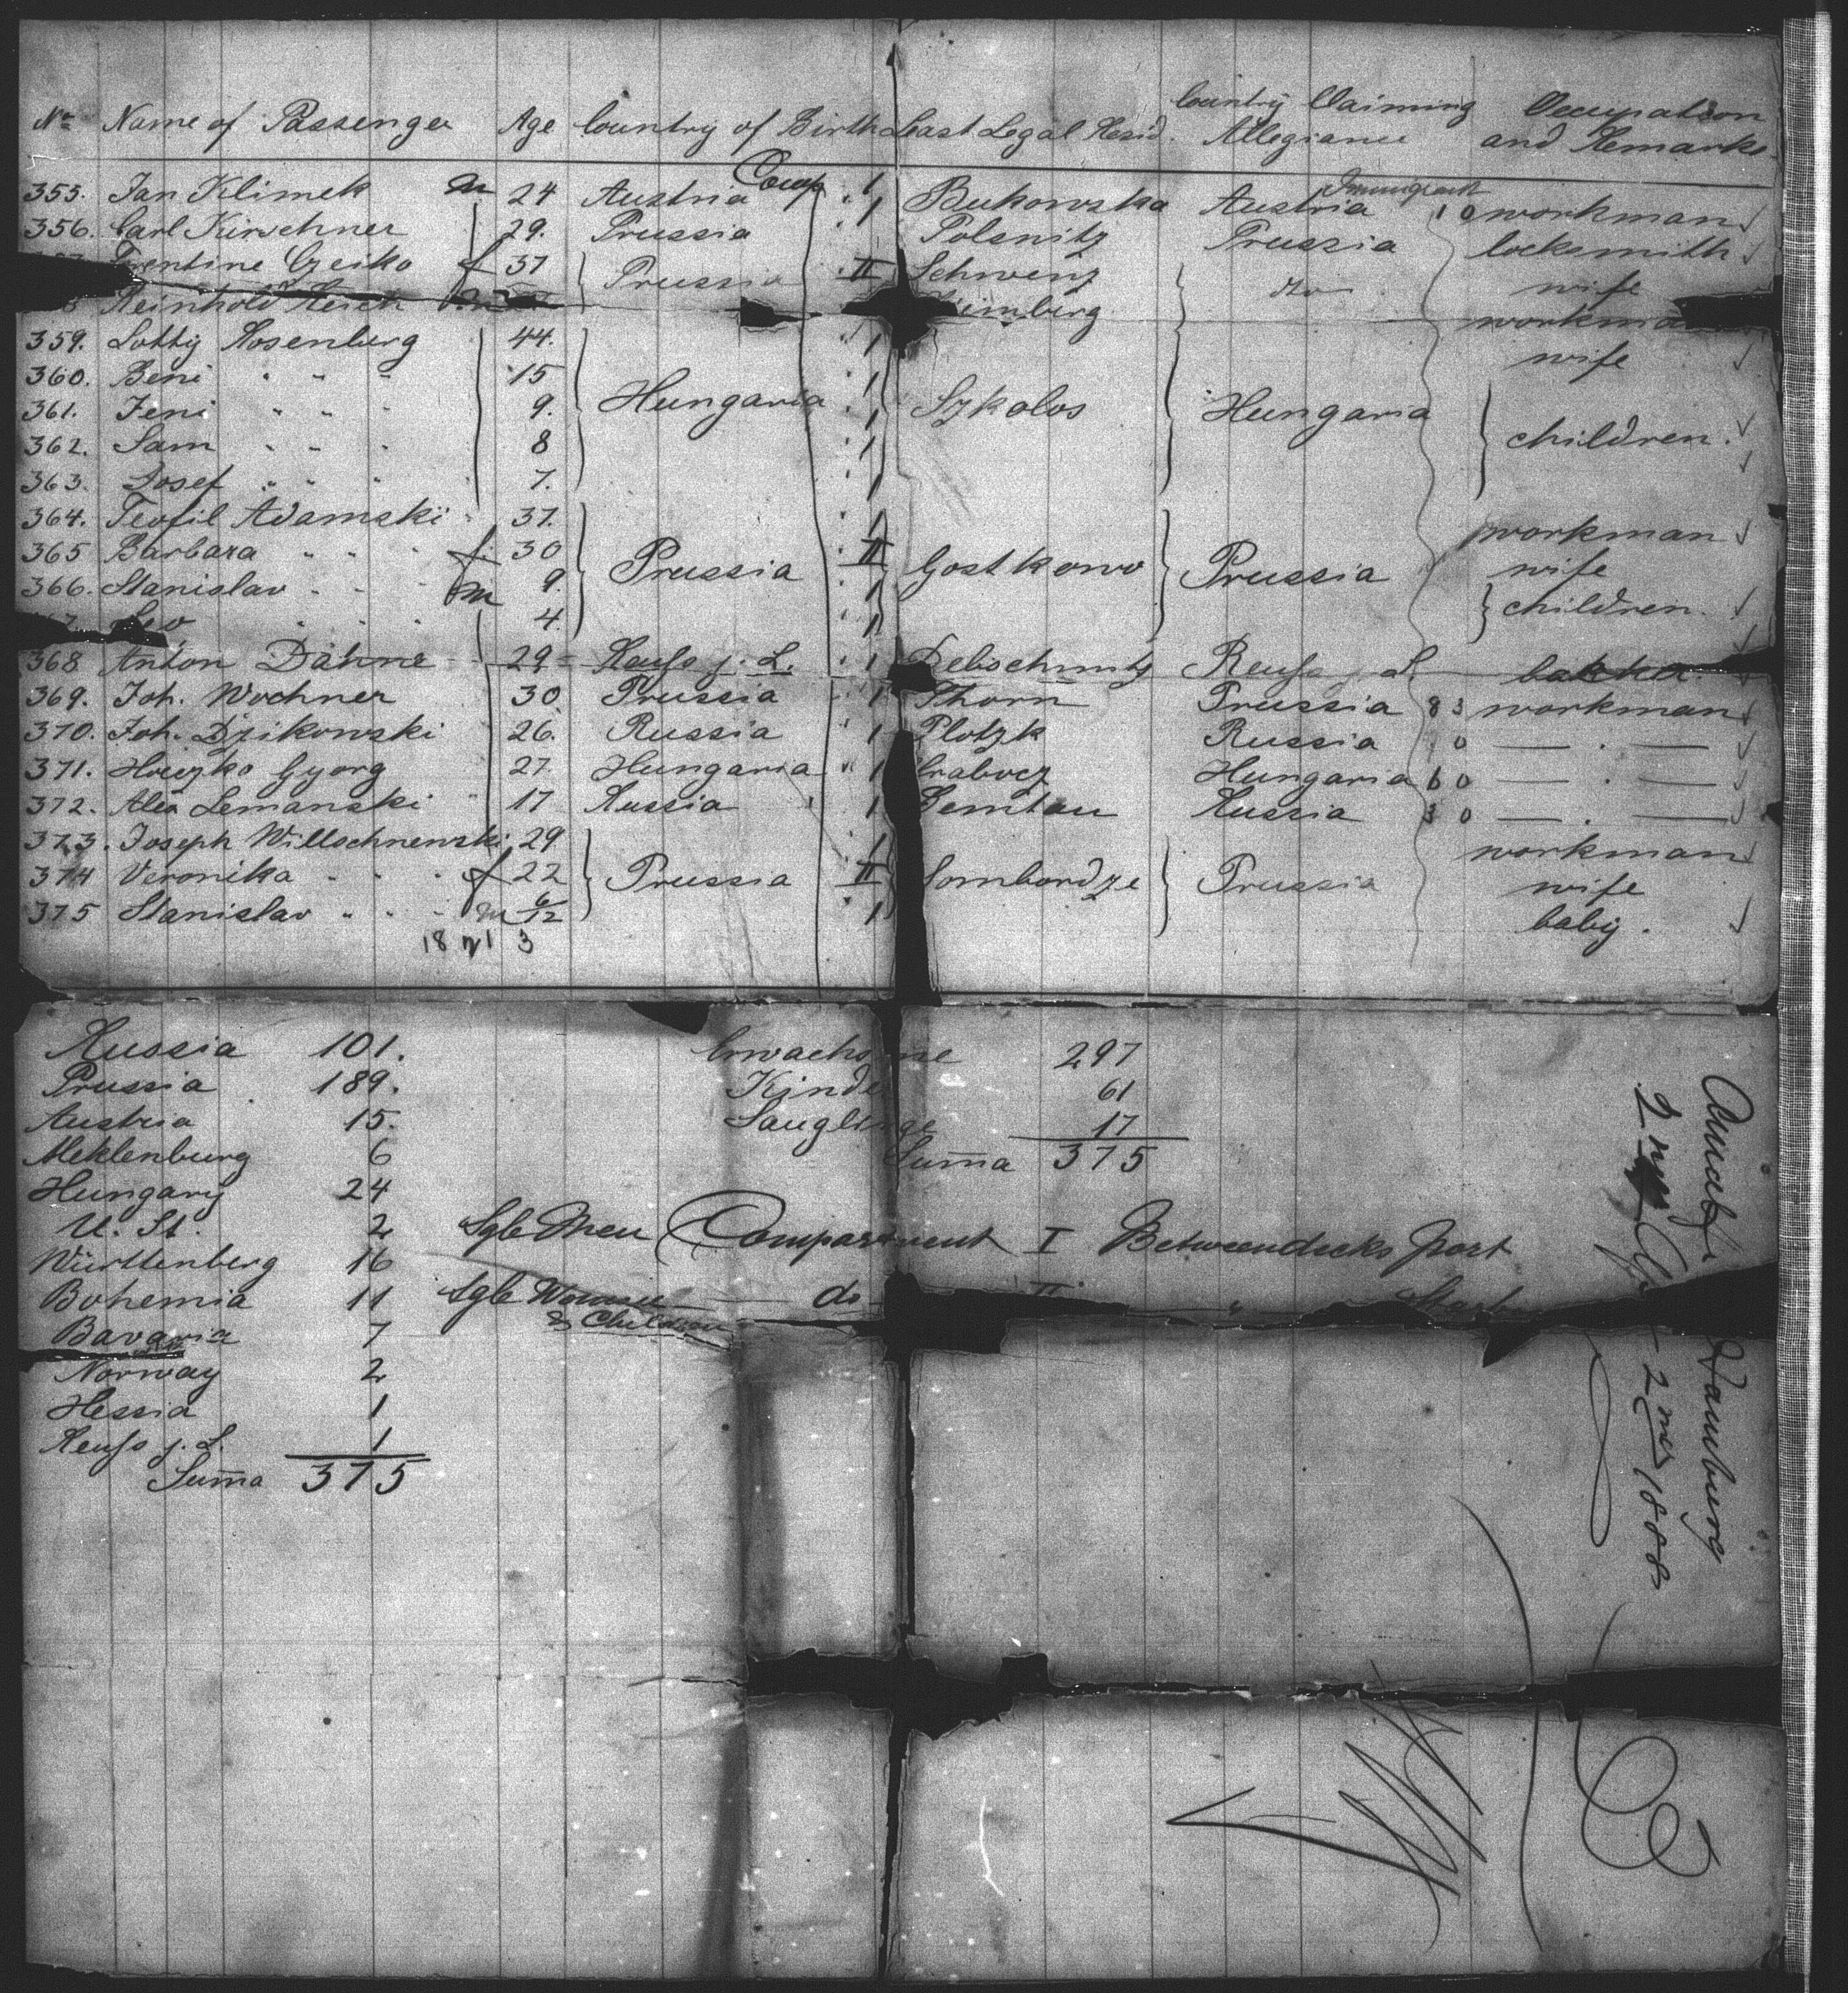 No Name of Passenger Age Country of Birth Last Legal Resid. Country Claiming Allegiance Occupation and Remarks
Comp. Immigrant
355. Jan Klimek m 24 Austria 1 Bukowska Austria 10 workman
356. Carl Kirschner 29. Prussia 1 Polsnitz Prussia locksmith
Czeiko f 37 Prussia II Schwenz do wife
Reinhold workman
359. Lotty Rosenburg 44. 1 wife
360. Beni " " " 15 1
361. Jeni " " " 9. Hungaria 1 Szkolos Hungaria
362. Sam " " " 8 1 children.
363. Josef " " " 7. 1
364. Teofil Adamski 37. 1 workman
365 Barbara " " " f 30 Prussia II Gostkowo Prussia wife
366. Stanislav " " m 9. 1 children.
Leo " " " 4. 1
368 Anton Dähne 29 Reuss j. L. 1 Debschwitz Reuss j. L.
369. Joh. Wochner 30. Prussia 1 Thorn Prussia 83 workman
370. Joh. Dzikowski 26. Russia 1 Plotzk Russia 0 — . —
371. Hruzko Gyorg 27. Hungaria 1 Hungaria 60 — . —
372. Alex Lemanski 17 Russia 1 Russia 30 — . —
373. Joseph Willschnewski 29 1 workman
374 Veronika " " " f 22 Prussia II Prussia wife
375 Stanislav " " " m 6/12 1 baby.
18 m 3
Russia 101.
Prussia 189.
Austria 15.
Meklenburg 6
Hungary 24
U. St. 2
Württenberg 16
Bohemia 11
Bavaria 7
Norway 2
Hessia 1
Reuss j. L. 1
Suma 375
Erwachsene 297
Kinder 61
Sauglinge 17
Suma 375
Sgle Men Compartment I Betweendecks port
Sgle Women do II "
& Children
Hamburg
1888